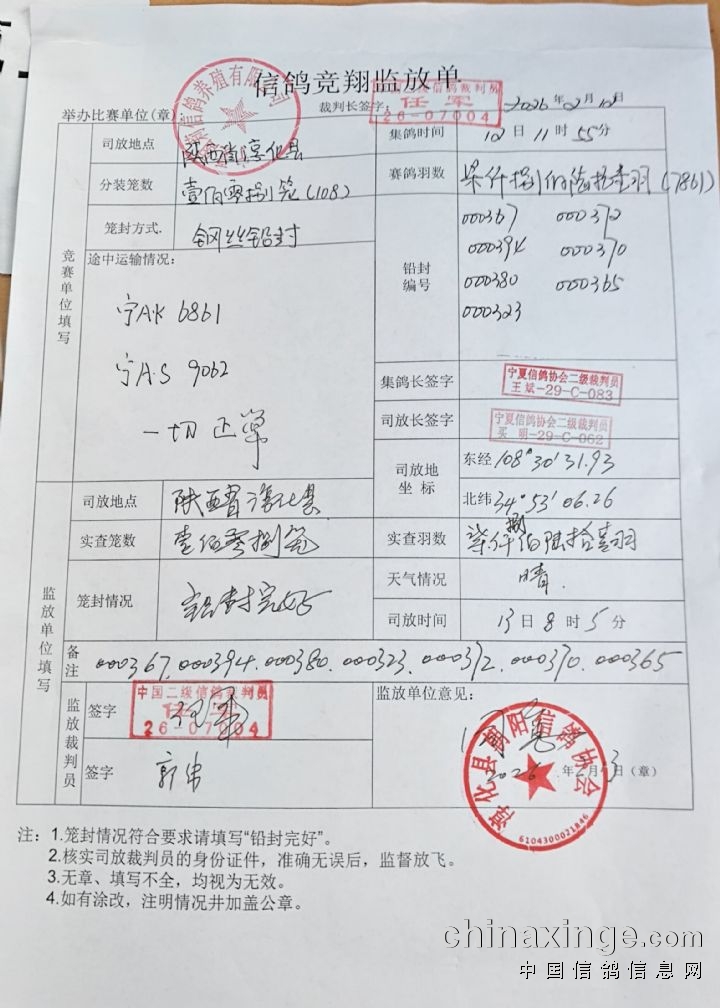 信鸽竞翔监放单
举办比赛单位(章):
裁判长签字:
信鸽裁判员
任军
26-07004
2026年2月12日
竞赛单位填写
司放地点 陕西省淳化县
集鸽时间 12日11时55分
分装笼数 壹佰零捌笼(108)
赛鸽羽数 柒仟捌佰陆拾壹羽(7861)
笼封方式. 钢丝铅封
铅封编号
000367 000372
000394 000370
000380 000365
000323
途中运输情况:
宁A·K 6861
宁A·S 9062
一切正常
集鸽长签字 宁夏信鸽协会二级裁判员
王斌-29-C-083
司放长签字 宁夏信鸽协会二级裁判员
买明-29-C-062
司放地坐标
东经 108°30′31.93
北纬 34°53′06.26
监放单位填写
司放地点 陕西省淳化县
实查笼数 壹佰零捌笼
实查羽数 柒仟捌佰陆拾壹羽
笼封情况 铅封完好
天气情况 晴.
司放时间 13日8时5分
备注 000367.000394.000380.000323.000372.000370.000365
监放裁判员
签字 中国二级信鸽裁判员
任军
26-07004
签字 郭伟
监放单位意见:
淳化县朝阳信鸽协会
6104300021846
2026.年2月13日(章)
注:1.笼封情况符合要求请填写“铅封完好”。
2.核实司放裁判员的身份证件,准确无误后,监督放飞。
3.无章、填写不全,均视为无效。
4.如有涂改,注明情况并加盖公章。
chinaxinge.com
中国信鸽信息网